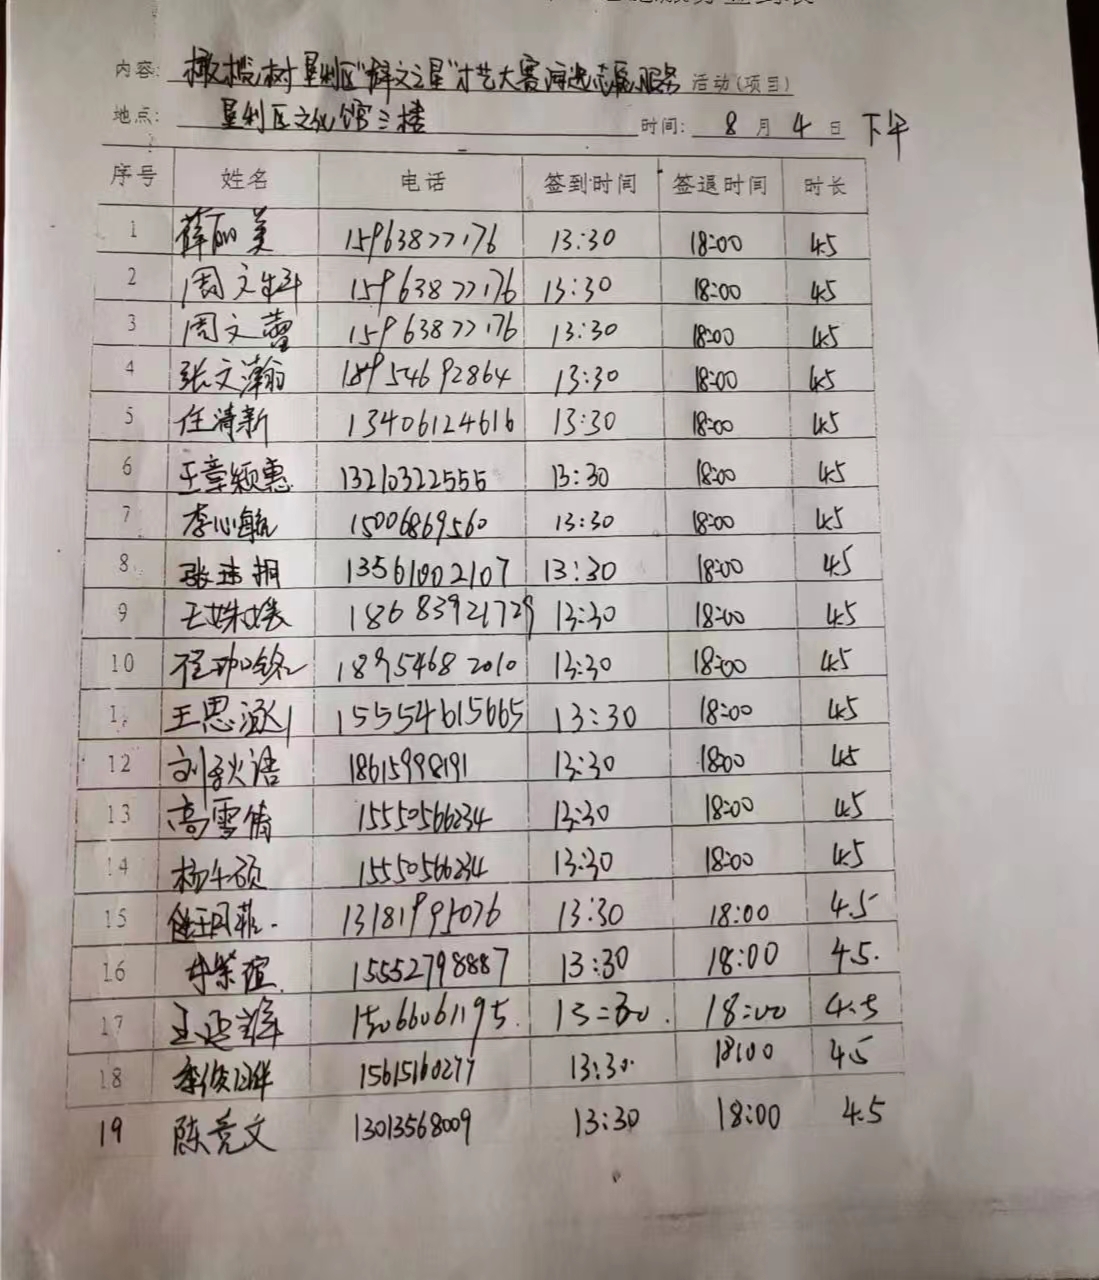 内容: 橄榄树垦利区"群文之星"才艺大赛海选志愿服务 活动(项目)
地点: 垦利区文化馆三楼 时间: 8 月 4 日 下午
序号 姓名 电话 签到时间 签退时间 时长
1 薛丽美 15963877176 13:30 18:00 4.5
2 周文 15963877176 13:30 18:00 4.5
3 周文蕾 15963877176 13:30 18:00 4.5
4 张文瀚 18954692864 13:30 18:00 4.5
5 任清新 13406124616 13:30 18:00 4.5
6 王章颖惠 13210322555 13:30 18:00 4.5
7 李心航 15006869560 13:30 18:00 4.5
8 张玮桐 13561002107 13:30 18:00 4.5
9 王姝 18683921729 13:30 18:00 4.5
10 程珈铭 18954682010 13:30 18:00 4.5
1 王思涵 15554615665 13:30 18:00 4.5
12 刘 语 18615998191 13:30 18:00 4.5
13 高雪倩 15550566234 13:30 18:00 4.5
14 杨 硕 15550566234 13:30 18:00 4.5
15 13181995076 13:30 18:00 4.5
16 15552798887 13:30 18:00 4.5.
17 王 15066061195. 13:30. 18:00 4.5
18 李俊 15615160277 13:30. 18:00 4.5
19 陈竞文 13013568009 13:30 18:00 4.5